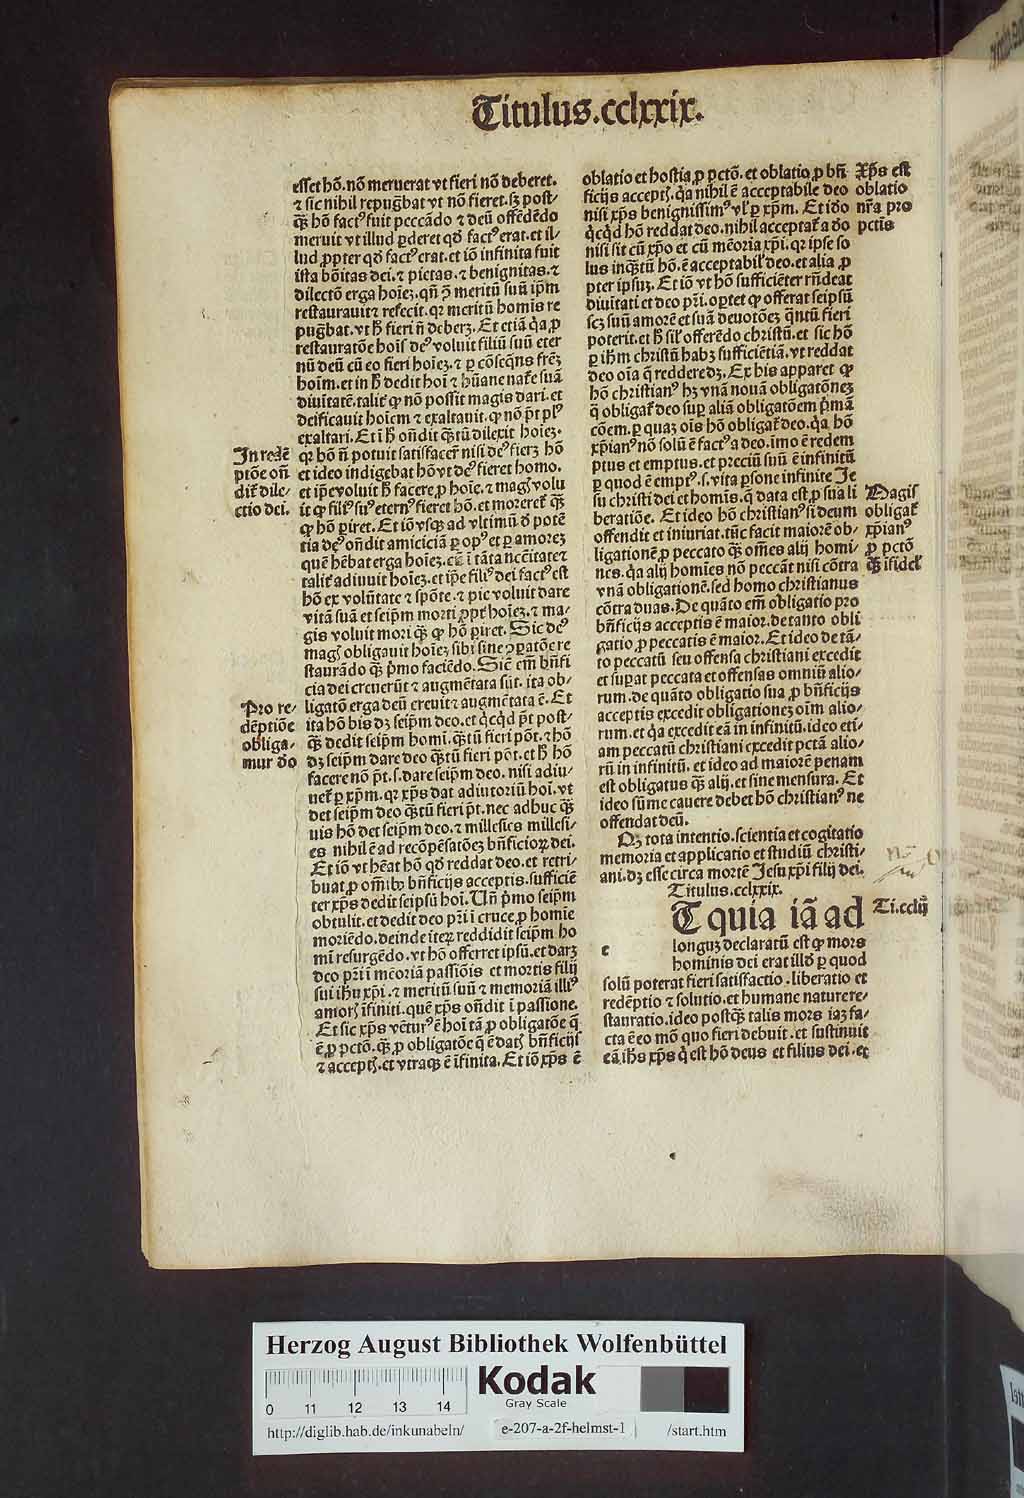 Titulus.cclxxix.
esset hõ. nõ meruerat vt fieri nõ deberet.
⁊ sic nihil repug̃bat vt nõ fieret. sꝫ post/
q̃ꝫ hõ factꝰ fuit peccãdo ⁊ deũ offẽdẽdo
meruit vt illud ꝑderet qđ factꝰ erat. et il/
lud ꝓpter qđ factꝰ erat. et iõ infinita fuit
ista bõitas dei. ⁊ pietas. ⁊ benignitas. ⁊
dilectõ erga hoieꝫ. qñ ꝯ̃ meritũ suũ ip̃m
restaurauit ⁊ refecit. qꝛ meritũ homĩs re
pug̃bat. vt ħ fieri ñ deberꝫ. Et etiã q̃a ꝓ
restauratõe hoĩs deꝰ voluit filiũ suũ eter
nũ deũ cũ eo fieri hoieꝫ. ⁊ ꝑ cõseq̃ns frẽꝫ
hoĩm. et in ħ dedit hoi ⁊ hũane nat̃e suã
diuitatẽ. talit̃ ꝙ nõ possit magis dari. et
deificauit hoiem ⁊ exaltauit. ꝙ nõ p̃t plꝰ
exaltari. Et ĩ ħ oñdit q̃ꝫtũ dilexit hoieꝫ.
In redẽ
ptõe oñ
dit̃ dile/
ctio dei.
qꝛ hõ ñ potuit satisfacer̃ nisi deꝰ fierꝫ hõ
et ideo indigebat hõ vt deꝰ fieret homo.
et ip̃e voluit ħ facere ꝓ hoie. ⁊ magꝭ volu
it ꝙ filiꝰ suꝰ eternꝰ fieret hõ. et moreret̃ q̃ꝫ
ꝙ hõ ꝑiret. Et iõ vsqꝫ ad vltimũ đ potẽ
tia deꝰ oñdit amiciciã ꝑ opꝰ et ꝑ amoreꝫ
quẽ hẽbat erga hoieꝫ. cũ ĩ tãta nc̃citate ⁊
talit̃ adiuuit hoieꝫ. et ip̃e filiꝰ dei factꝰ est
hõ ex volũtate ⁊ spõte. ⁊ pie voluit dare
vitã suã et seip̃m morti ꝓpt̃ hoieꝫ. ⁊ ma/
gis voluit mori q̃ꝫ ꝙ hõ ꝑiret. Sic deꝰ
magꝭ obligauit hoieꝫ sibi sine ꝯꝑatõe re
staurãdo q̃ꝫ p̃mo faciẽdo. Siẽ em̃ bñfi
cia dei creuerũt ⁊ augmẽtata sũt. ita ob/
Pro re/
dẽptiõe
obliga/
mur đo
ligatõ erga deũ creuit ⁊ augmẽtata ẽ. Et
ita hõ bis dꝫ seip̃m deo. et q̃cq̃d p̃t post/
q̃ꝫ dedit seip̃m homi. q̃ꝫtũ fieri põt. ⁊ hõ
dꝫ seip̃m dare deo q̃ꝫtũ fieri põt. et ħ hõ
facere nõ p̃t. s. dare seip̃m deo. nisi adiu/
uet̃ ꝑ xp̃m. qꝛ xp̃s dat adiutoriũ hoi. vt
det seip̃m deo q̃ꝫtũ fieri p̃t. nec adhuc q̃ꝫ
uis hõ det seip̃m deo. ⁊ millesies millesi/
es nihil ẽ ad recõpẽsatõeꝫ bñficioꝝ dei.
Et iõ vt hẽat hõ qđ reddat deo. et retri/
buat ꝓ om̃ibꝰ bñficijs acceptis. sufficiẽ
ter xp̃s dedit seipsũ hoi. Uñ p̃mo seip̃m
obtulit. et dedit deo p̃ri ĩ cruce ꝓ homie
moriẽdo. deinde iteꝝ reddidit seip̃m ho
mĩ resurgẽdo. vt hõ offerret ipsũ. et darꝫ
deo p̃ri ĩ mẽoriã passiõis et mortis filij
sui ihũ xp̃i. ⁊ meritũ suũ ⁊ memoriã illiꝰ
amorꝭ ĩfiniti. quẽ xp̃s oñdit ĩ passione.
Et sic xp̃s vẽturꝰ ẽ hoi tã ꝓ obligatõe q̃
ẽ ꝓ pctõ. q̃ꝫ ꝓ obligatõe q̃ ẽ datꝭ bñficijs
⁊ acceptꝭ. et vtraqꝫ ẽ ĩfinita. Et iõ xp̃s ẽ
oblatio et hostia ꝓ pctõ. et oblatio ꝓ bñ
ficijs acceptꝭ. q̃a nihil ẽ acceptabile deo
nisi xp̃s benignissimꝰ vl̃ ꝑ xp̃m. Et iđo
q̃cq̃d hõ reddat deo. nihil acceptat̃ a đo
nisi sit cũ xp̃o et cũ mẽoria xp̃i. qꝛ ipse so
lus inq̃ꝫtũ hõ. ẽ acceptabil̃ deo. et alia ꝓ
pter ipsuꝫ. Et iõ vt hõ sufficiẽter rñdeat
diuitati et deo p̃ri. oꝑtet ꝙ offerat seipsũ
scꝫ suũ amorẽ et suã deuotõeꝫ q̃ntũ fieri
poterit. et ħ sil̃ offerẽdo christũ. et sic hõ
ꝑ ihm̃ christũ habꝫ sufficiẽtiã. vt reddat
deo oĩa q̃ reddere dꝫ. Ex his apparet ꝙ
hõ christianꝰ hꝫ vnã nouã obligatõneꝫ
q̃ obligat̃ deo suꝑ aliã obligatõem p̃mã
cõem. ꝑ quaꝫ oĩs hõ obligat̃ deo. q̃a hõ
xp̃ianꝰ nõ solũ ẽ factꝰ a deo. imo ẽ redem
ptus et emptus. et preciũ suũ ẽ infinitũ
ꝑ quod ẽ emptꝰ. s. vita ꝑsone infinite Je
su christi dei et homĩs. q̃ data est ꝓ sua li
beratiõe. Et ideo hõ christianꝰ si deum
offendit et iniuriat. tũc facit maiorẽ ob/
ligationẽ ꝓ peccato q̃ꝫ om̃es alij homi/
nes. q̃a alij homĩes nõ peccãt nisi cõtra
vnã obligationẽ. sed homo christianus
cõtra duas. De quãto em̃ obligatio pro
bñficijs acceptis ẽ maior. de tanto obli
gatio ꝓ peccatis ẽ maior. Et ideo de tã/
to peccatũ seu offensa christiani excedit
et suꝑat peccata et offensas omniũ alio/
rum. de quãto obligatio sua ꝓ bñficijs
acceptis excedit obligationeꝫ oĩm alio/
rum. et q̃a excedit eã in infinitũ. ideo eti/
am peccatũ christiani excedit pctã alio/
rũ in infinitũ. et ideo ad maiorẽ penam
est obligatus q̃ꝫ alij. et sine mensura. Et
ideo sũme cauere debet hõ christianꝰ ne
offendat deũ.
Xp̃s est
oblatio
nr̃a pro
pctis
Magis
obligat̃
xp̃ianꝰ
ꝓ pctõ
q̃ꝫ ĩfidel̃
Qꝫ tota intentio. scientia et cogitatio
memoria et applicatio et studiũ christi/
ani. dꝫ esse circa mortẽ Jesu xp̃i filij dei.
Titulus. cclxxix.
Ti. cclij
T quia iã ad
e longuꝫ declaratũ est ꝙ mors
hominis dei erat illđ ꝑ quod
solũ poterat fieri satisfactio. liberatio et
redẽptio ⁊ solutio. et humane nature re/
stauratio. ideo postq̃ꝫ talis mors iaꝫ fa/
cta ẽ eo mõ quo fieri debuit. et sustinuit
eã ihs̃ xp̃s q̃ est hõ deus et filius dei. et
Herzog August Bibliothek Wolfenbüttel
Kodak
Gray Scale
0 11 12 13 14
http://diglib.hab.de/inkunabeln/ e-207-a-2f-helmst-1 /start.htm